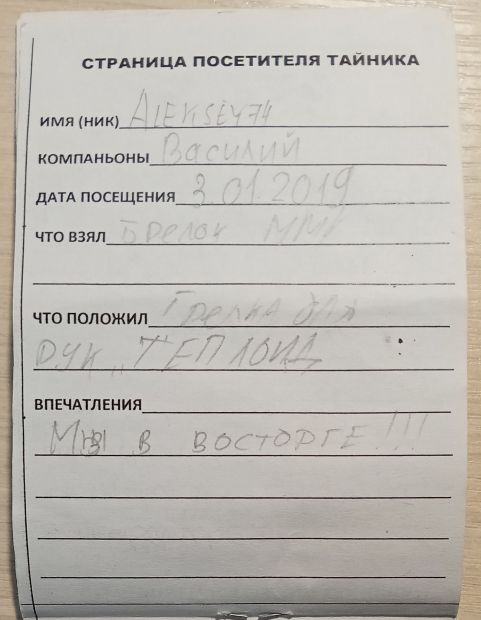 СТРАНИЦА ПОСЕТИТЕЛЯ ТАЙНИКА
ИМЯ (НИК) ALEKSEY74
КОМПАНЬОНЫ Василий
ДАТА ПОСЕЩЕНИЯ 3.01.2019
ЧТО ВЗЯЛ Брелок
ЧТО ПОЛОЖИЛ Грелка для
рук „ТЕПЛОИД
ВПЕЧАТЛЕНИЯ
Мы в ВОСТОРГЕ!!!